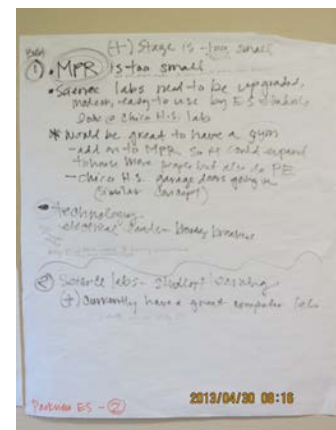 (+) Stage is too small
① • MPR is too small
• Science labs need to be upgraded,
modern, ready to use by ES students
Look @ Chico H.S. lab
* Would be great to have a gym
- add on to MPR so it could expand
to house more people but also do PE
- Chico H.S. garage doors going in
(similar concept)
• technology
electrical
② Science labs - student learning
(+) Currently have a great computer lab
Parkview ES - ②
2013/04/30 08:16